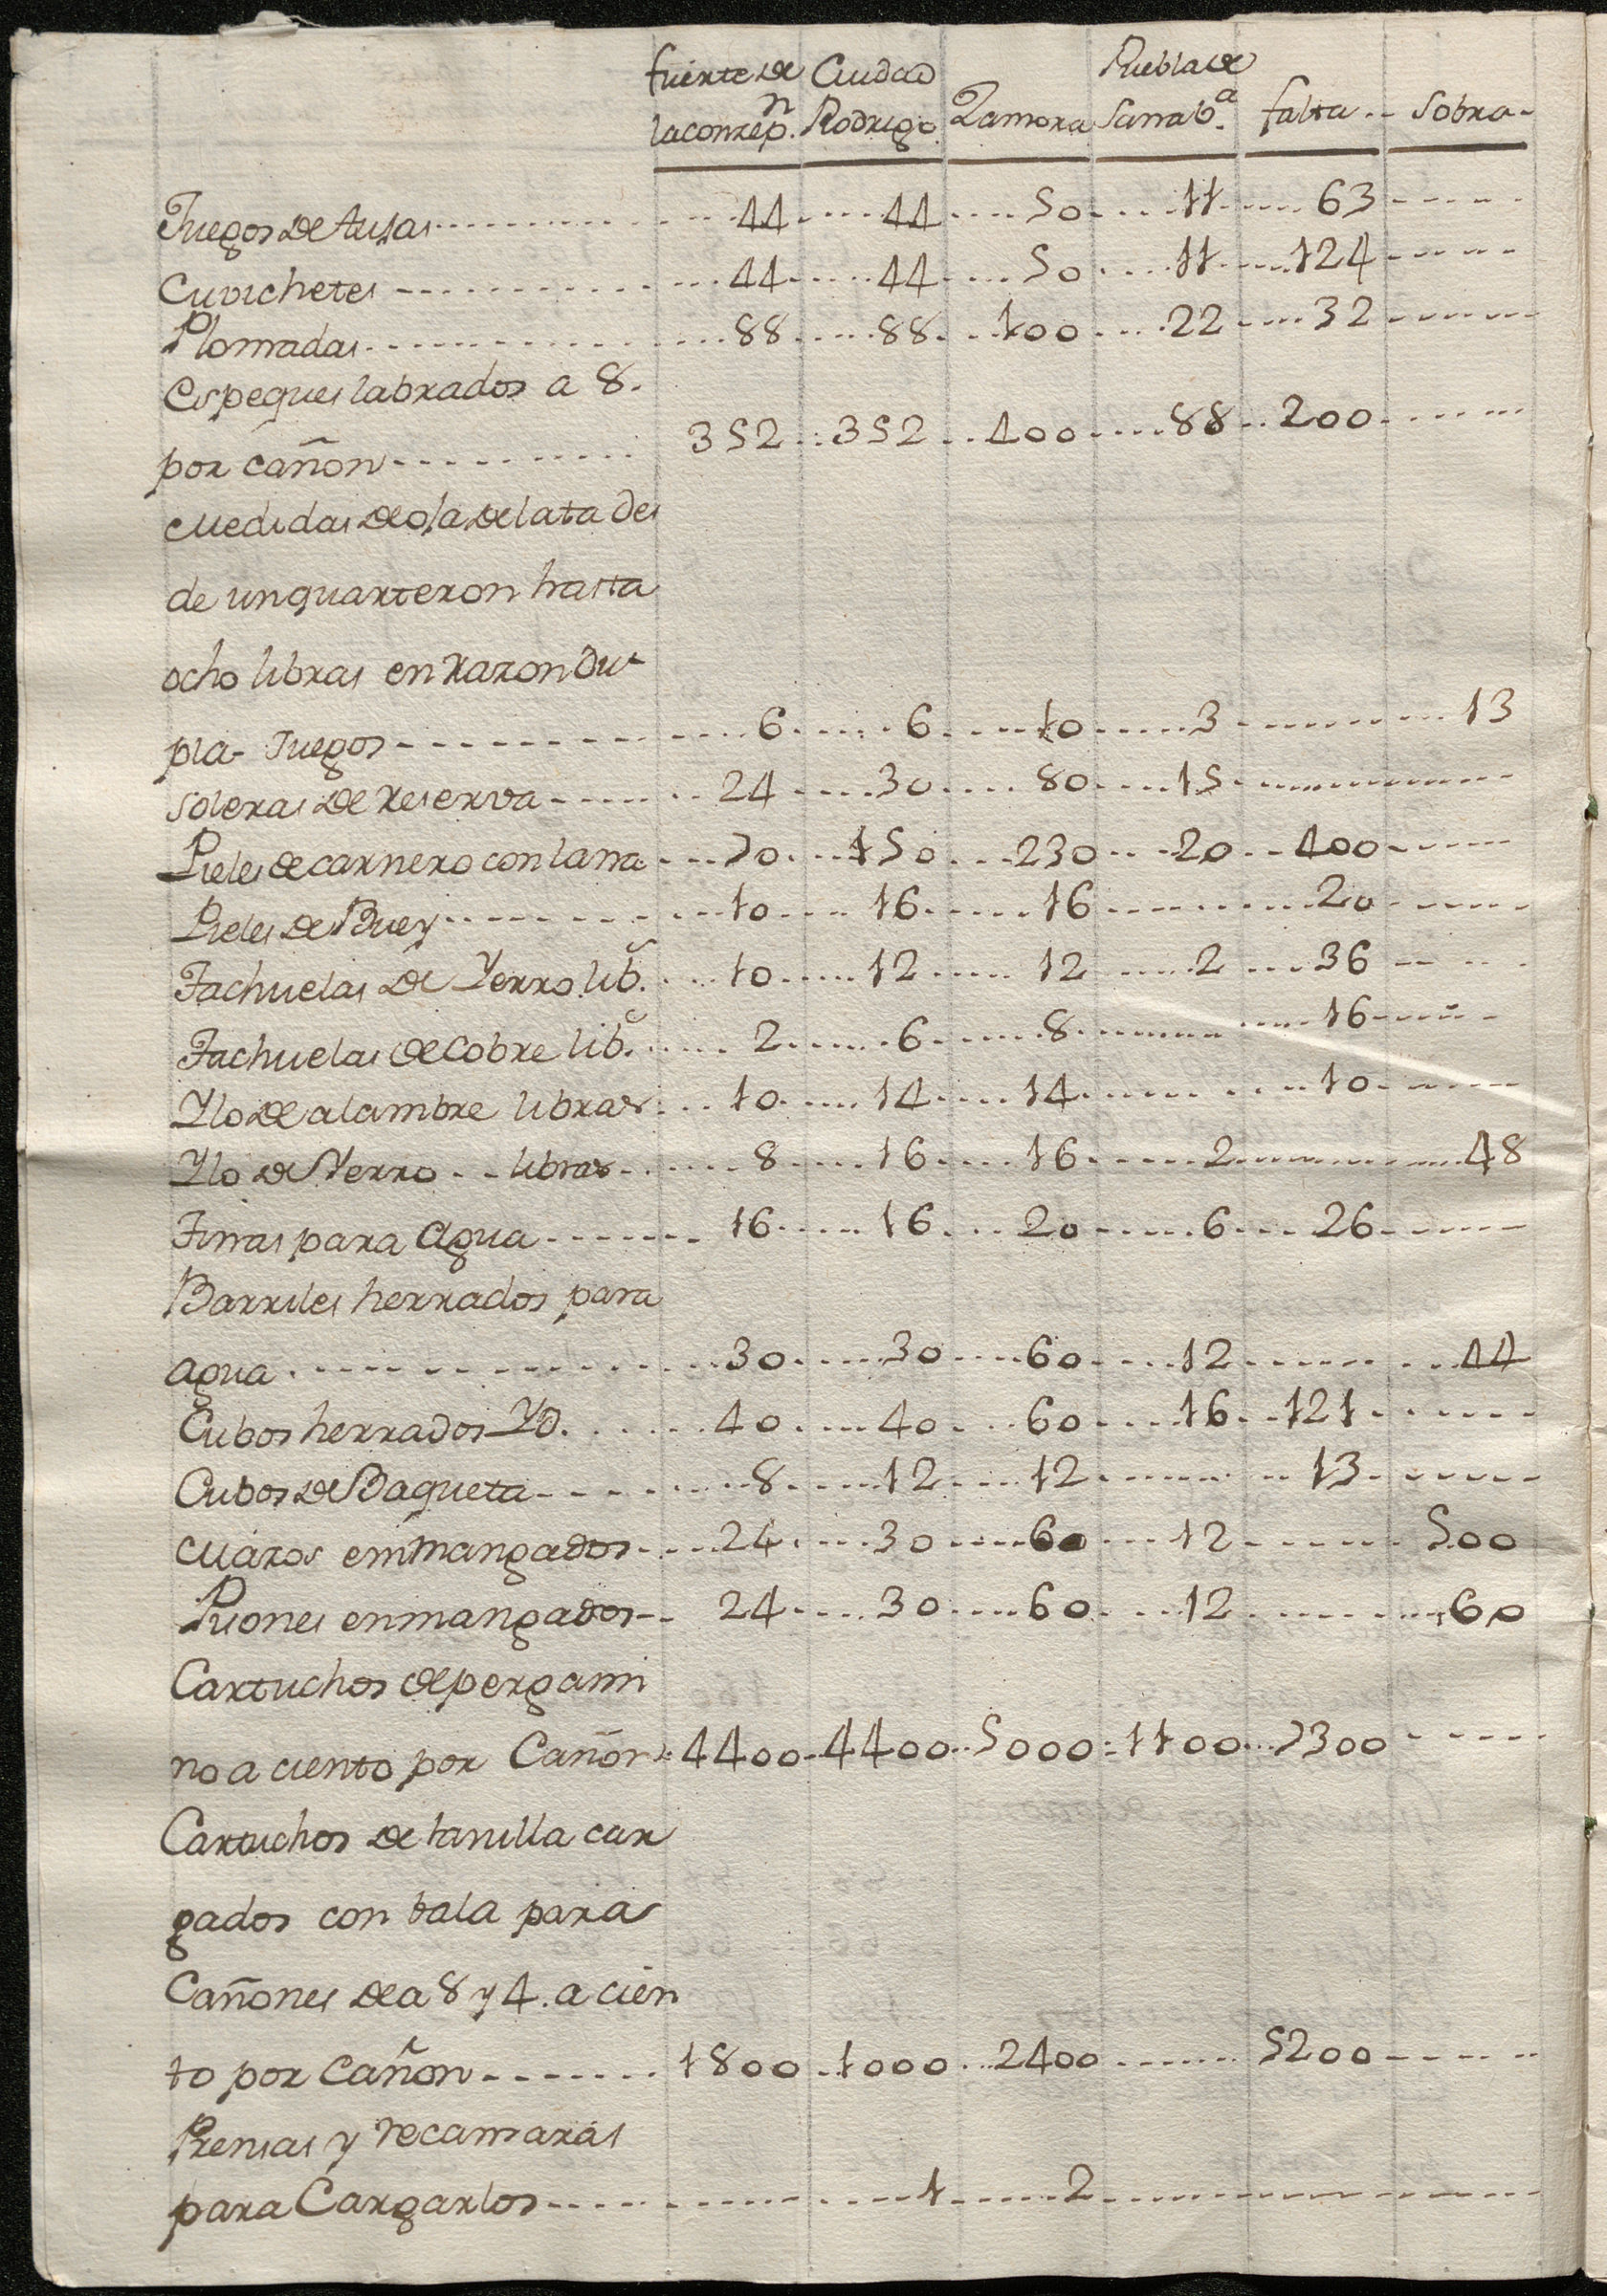 fuerte de la conzep.n Ciudad Rodrigo Zamora Puebla de Sanab.a falta Sobra
Juegos de Aujas 44 44 50 11 63
Cuvichetes 44 44 50 11 124
Plomadas 88 88 100 22 32
Espeques labrados a 8.
por cañon 352 352 400 88 200
Medidas de oja de lata des
de un quarteron hasta
ocho libras en razon du
pla- Juegos 6 6 10 3 13
Soleras de Reserva 24 30 80 15
Pieles de carnero con lana 70 150 230 20 400
Pieles de Buey 10 16 16 20
Tachuelas de Yerro lib. 10 12 12 2 36
Tachuelas de Cobre lib. 2 6 8 16
Ylo de alambre libras 10 14 14 10
Ylo de Yerro libras 8 16 16 2 48
Tinas para agua 16 16 20 6 26
Barriles herrados para
agua 30 30 60 12 44
Cubos herrados YD. 40 40 60 16 121
Cubos de Baqueta 8 12 12 13
Mazos emmangados 24 30 60 12 500
Piones enmangados 24 30 60 12 60
Cartuchos de pergami
no a ciento por Cañon 4400 4400 5000 1100 7300
Cartuchos de lanilla car
gados con bala para
Cañones de a 8 y 4. a cien
to por Cañon 1800 1000 2400 5200
Prensas y recamaras
para Cargarlos 1 2